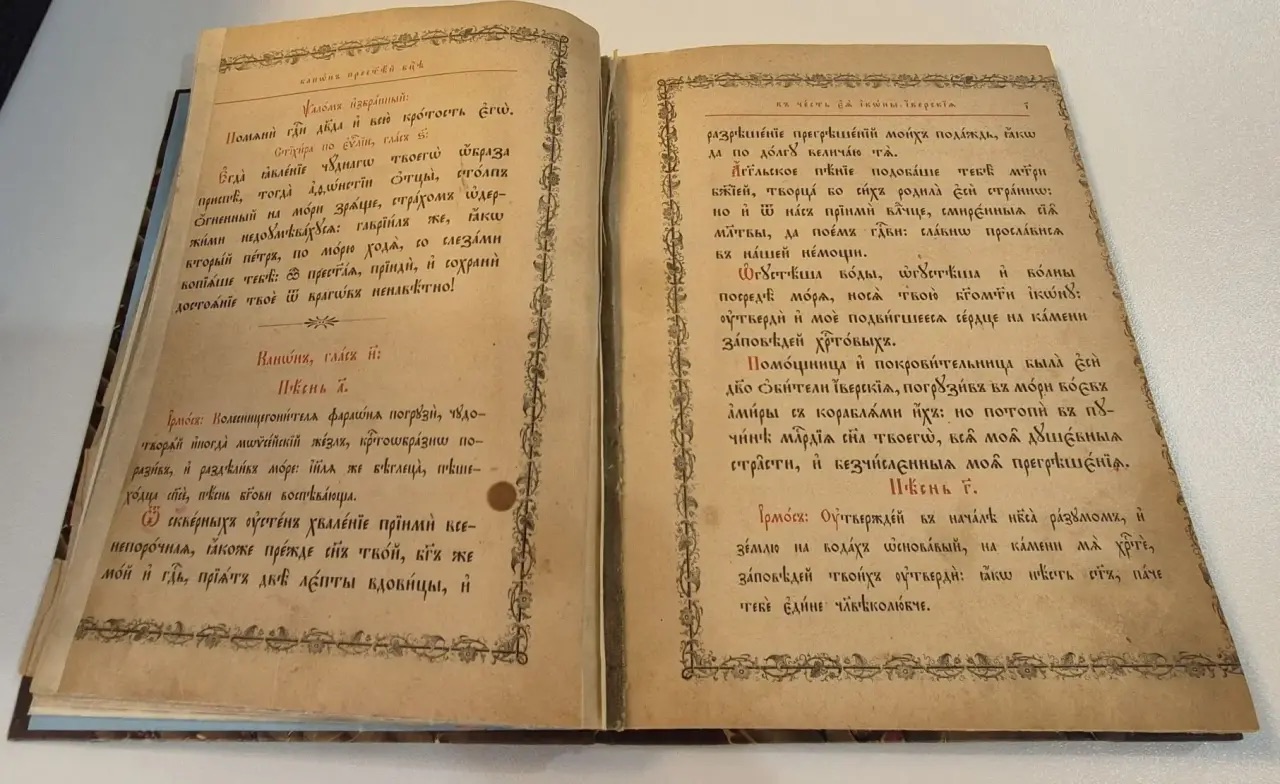 канѡ́нъ прест҃ѣ́й бц҃ѣ
Ѱало́мъ и҆збра́нный:
Помѧнѝ гдⷭ҇и дв҃да и҆ всю̀ кро́тость є҆гѡ̀.
Стїхи́ра по є҆ѵⷢ҇лїи, гла́съ ѕ҃:
Є҆гда̀ ꙗ҆вле́нїе чу́днагѡ твоегѡ̀ ѡ҆́браза
приспѣ̀, тогда̀ а҆ѳѡ́нстїи ѻ҆тцы̀, сто́лпъ
ѻ҆́гненный на мо́ри зрѧ́ще, стра́хомъ ѡ҆держ-
жи́ми недоумѣва́хусѧ: гаврїи́лъ же, ꙗ҆́кѡ
вторы́й пе́тръ, по мо́рю ходѧ̀, со слеза́ми
вопїѧ́ше тебѣ̀: ѽ прест҃а́ѧ, прїидѝ, и҆ сохранѝ
достоѧ́нїе твоѐ ѿ врагѡ́въ ненавѣ́тно!
Канѡ́нъ, гла́съ и҃:
Пѣ́снь а҃.
І҆рмо́съ: Колесницегони́телѧ фараѡ́на погрузѝ, чудо-
творѧ́й и҆ногда̀ мѡѷсе́йскїй же́злъ, крⷭ҇тоѡбра́знѡ по-
рази́въ, и҆ раздѣли́въ мо́ре: і҆и҃лѧ же бѣглеца̀, пѣше-
хо́дца сп҃сѐ, пѣ́снь бг҃ови воспѣва́юща.
Ѿ скве́рныхъ ᲂу҆сте́нъ хвале́нїе прїимѝ все-
непоро́чнаѧ, ꙗ҆́коже пре́жде сн҃ъ тво́й, бг҃ъ же
мо́й и҆ гдⷭ҇ь, прїѧ́тъ двѣ̀ лє́пты вдови́цы, и҆
въ че́сть є҆ѧ̀ і҆кѡ́ны і҆́верскїѧ
разрѣше́нїе прегрѣше́нїй мои́хъ пода́ждь, ꙗ҆́кѡ
да по до́лгу велича́ю тѧ̀.
А҆́гг҃льское пѣ́нїе подоба́ше тебѣ̀ мт҃ри
бж҃їей, творца̀ бо си́хъ родила̀ є҆сѝ стра́ннѡ:
но и҆ ѿ на́съ прїимѝ влⷣчце, смирє́нныѧ сїѧ̑
мл҃твы, да пое́мъ гдⷭ҇ви: сла́внѡ просла́висѧ
въ на́шей не́мощи.
Ѡ҆густѣ́ша во́ды, ѡ҆густѣ́ша и҆ во́лны
посредѣ̀ мо́рѧ, носѧ̀ твою̀ бг҃ома́ти і҆кѡ́ну:
ᲂу҆твердѝ и҆ моѐ подви́гшеесѧ се́рдце на ка́мени
за́повѣдей хрⷭ҇то́выхъ.
Помо́щница и҆ покрови́тельница была̀ є҆сѝ
дв҃о ѻ҆би́тели і҆́верскїѧ, погрузи́въ въ мо́ри во́євъ
а҆ми́ры съ корабля́ми и҆́хъ: но потопѝ въ пу-
чи́нѣ млⷭ҇рдїѧ сн҃а твоегѡ̀, всѧ̑ моѧ̑ дꙋшє́вныѧ
стра̑сти, и҆ безчи́слєнныѧ моѧ̑ прегрѣшє́нїѧ.
Пѣ́снь г҃.
І҆рмо́съ: Оу҆твержде́й въ нача́лѣ нб҃са̀ ра́зумомъ, и҆
зе́млю на вода́хъ ѡ҆снова́вый, на ка́мени мѧ̀ хрⷭ҇тѐ,
за́повѣдей твои́хъ ᲂу҆твердѝ: ꙗ҆́кѡ нѣ́сть ст҃ъ, па́че
тебѐ є҆ди́не чл҃вѣколю́бче.